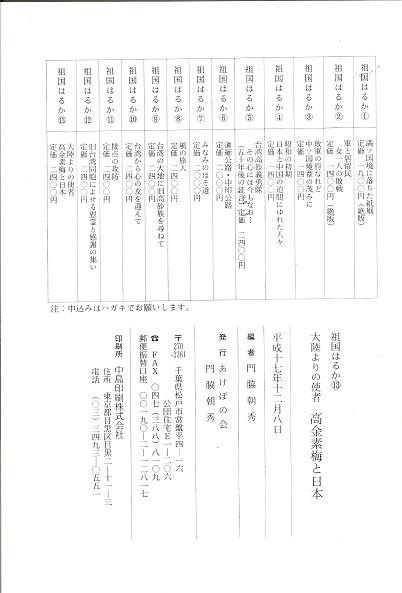 祖国はるか①
満ソ国境に落ちた紙風
定価 一九〇〇円（絶版）
祖国はるか②
軍と居留民
一女一人の敗戦
定価 一四〇〇円（絶版）
祖国はるか③
敗軍の将なれど
中ソ国境章の茂みに
定価 一四〇〇円
祖国はるか④
昭和の初期
日本と中国の迫間にゆれた人々
定価 一四〇〇円
祖国はるか⑤
台湾高砂義勇隊
その心には今もなお…
（五十年後の証言）定価 二四〇〇円
祖国はるか⑥
滇緬公路・中印公路
定価 二四〇〇円
祖国はるか⑦
みなみのほそ道
定価 二〇〇〇円
祖国はるか⑧
風の旅人
定価 二四〇〇円
祖国はるか⑨
台湾の大地に旧高砂族を尋ねて
定価 二四〇〇円
祖国はるか⑩
台湾から心の友を迎えて
定価 二四〇〇円
祖国はるか⑪
接点の攻防
定価 二四〇〇円
祖国はるか⑫
旧台湾同胞によせる慰霊と感謝の集い
定価 二四〇〇円
祖国はるか⑬
大陸よりの使者
高金素梅と日本
定価 二四〇〇円
注：申込みはハガキでお願いします。
祖国はるか⑬
大陸よりの使者 高金素梅と日本
平成十七年十二月八日
編者 門脇朝秀
発行 あけぼの会
門脇朝秀
〒270-2261 千葉県松戸市常盤平四－一六
公団住宅E一－二〇六
☎FAX 〇四七（三八八）八一〇九
郵便振替口座 〇〇一九〇－二－一二八一七
印刷所 中島印刷株式会社
住所 東京都目黒区目黒二－十一－三
電話 （〇三）三四九三－〇五五一